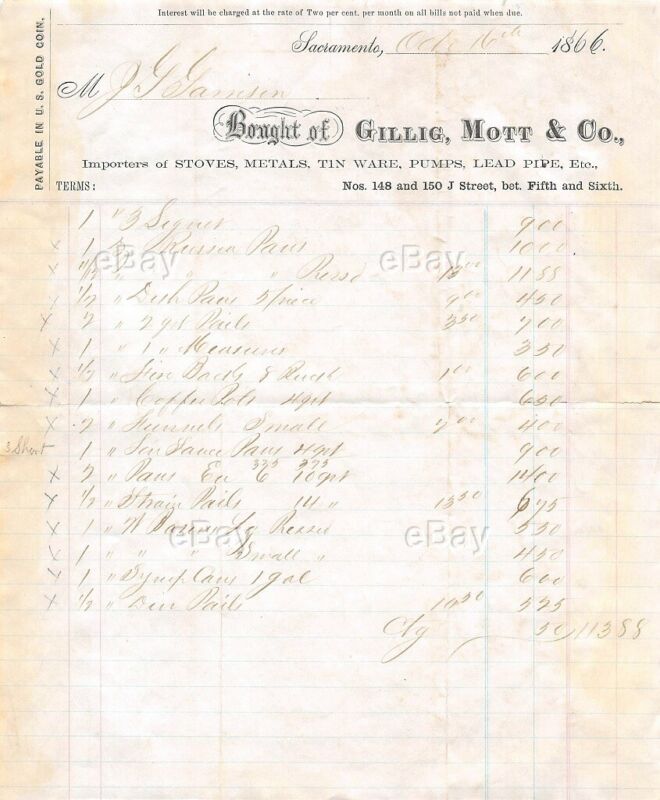 Interest will be charged at the rate of Two per cent. per month on all bills not paid when due.
PAYABLE IN U. S. GOLD COIN.
Sacramento, Oct 16th 1866.
M J G
Bought of GILLIG, MOTT & Co.,
Importers of STOVES, METALS, TIN WARE, PUMPS, LEAD PIPE, Etc.,
TERMS: Nos. 148 and 150 J Street, bet. Fifth and Sixth.
1 " 3 9 00
x 1 " Pans 10 00
x 1/2 " " " 11 88
1/2 " Dish Pans 9 00 4 50
x 2 " 2 qt Pails 3 50 7 00
x 1 " 1 " Measures 3 50
x 1/2 " 6 00
x 1 " Coffee Pots 4 qt 6 50
x 2 " Funnels Small 2 00 4 00
3 Short 1 " Sauce Pans 4 qt 9 00
x 2 " Pans 6 10 qt 14 00
x 1/2 " Strain Pails 14 " 13 50 6 75
x 1 " 5 50
x 1 " " " Small " 4 50
x 1 " Syrup Cans 1 gal 6 00
x 1/2 " Din Pails 10 50 5 25
Ctg 50 113 88
eBay eBay
eBay eBay